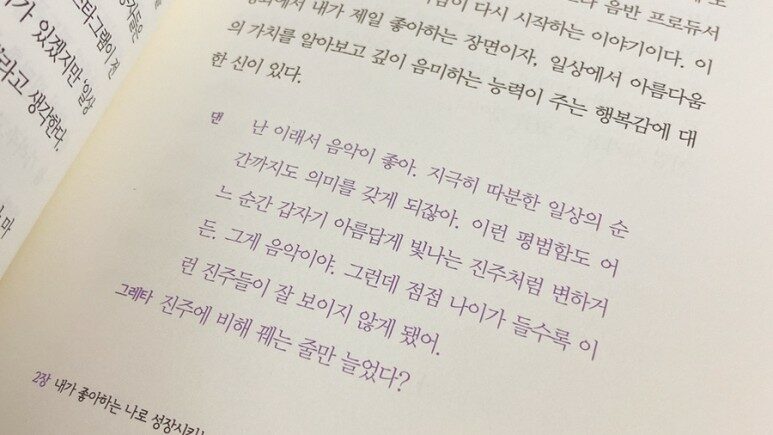 각들은
스타그램이 전
가 있겠지만 '일상
라고 생각한다.
마
음반 프로듀서
이 다시 시작하는 이야기이다. 이
에서 내가 제일 좋아하는 장면이자, 일상에서 아름다움
의 가치를 알아보고 깊이 음미하는 능력이 주는 행복감에 대
한 신이 있다.
댄 난 이래서 음악이 좋아. 지극히 따분한 일상의 순
간까지도 의미를 갖게 되잖아. 이런 평범함도 어
느 순간 갑자기 아름답게 빛나는 진주처럼 변하거
든. 그게 음악이야. 그런데 점점 나이가 들수록 이
런 진주들이 잘 보이지 않게 됐어.
그레타 진주에 비해 꿰는 줄만 늘었다?
2장 내가 좋아하는 나로 성장시키는